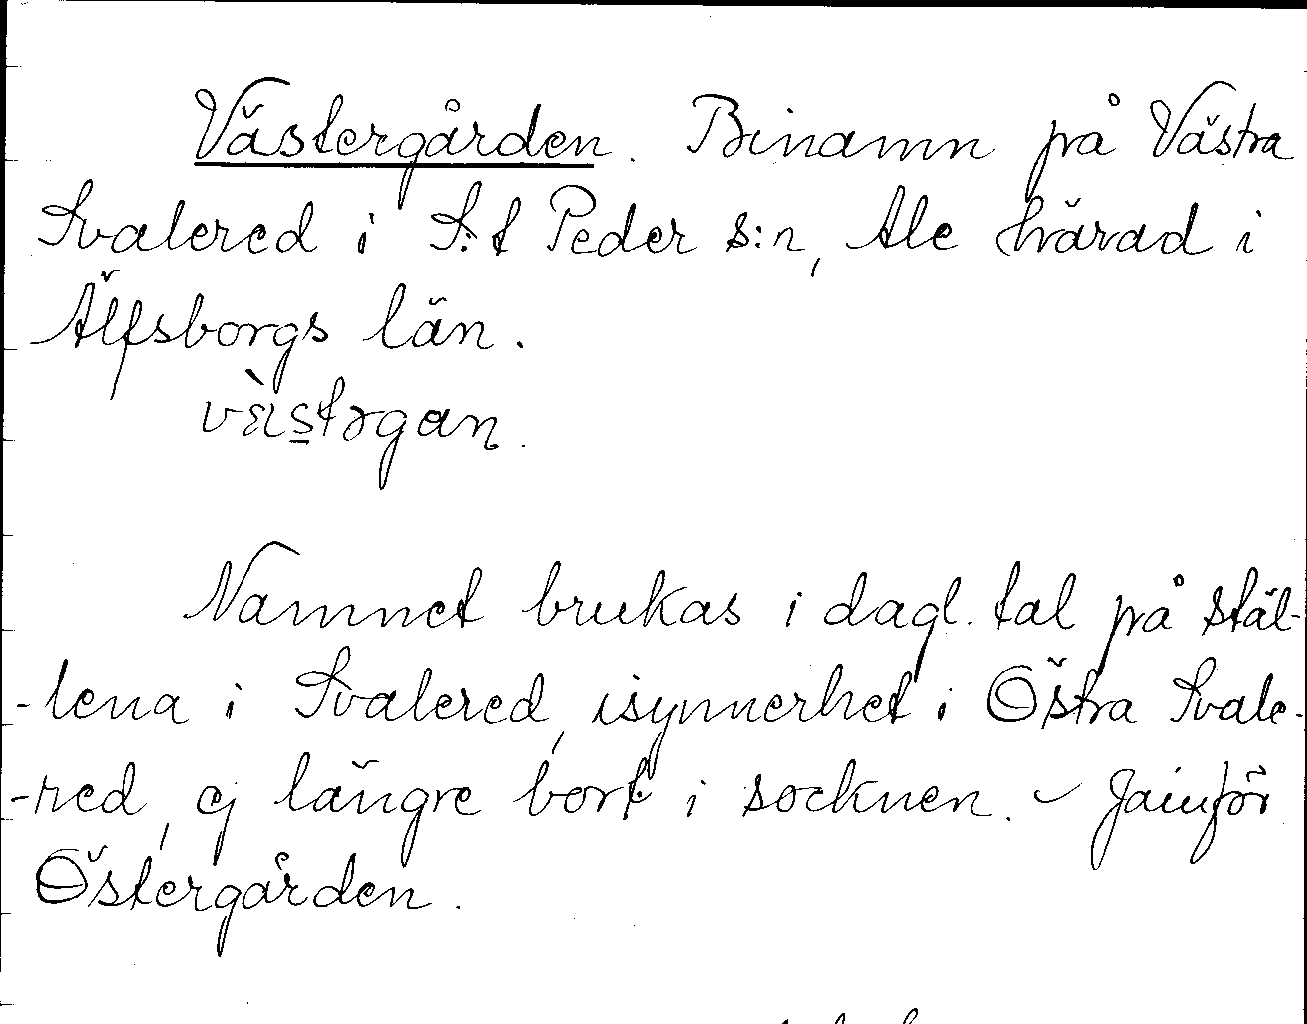 Västergården. Binamn på Västra
Svalered i S:t Peder s:n, Ale härad i
Älfsborgs län.
Namnet brukas i dagl. tal på stäl-
-lena i Svalered, isynnerhet i Östra Svale-
-red, ej längre bort i socknen. – Jämför
Östergården.